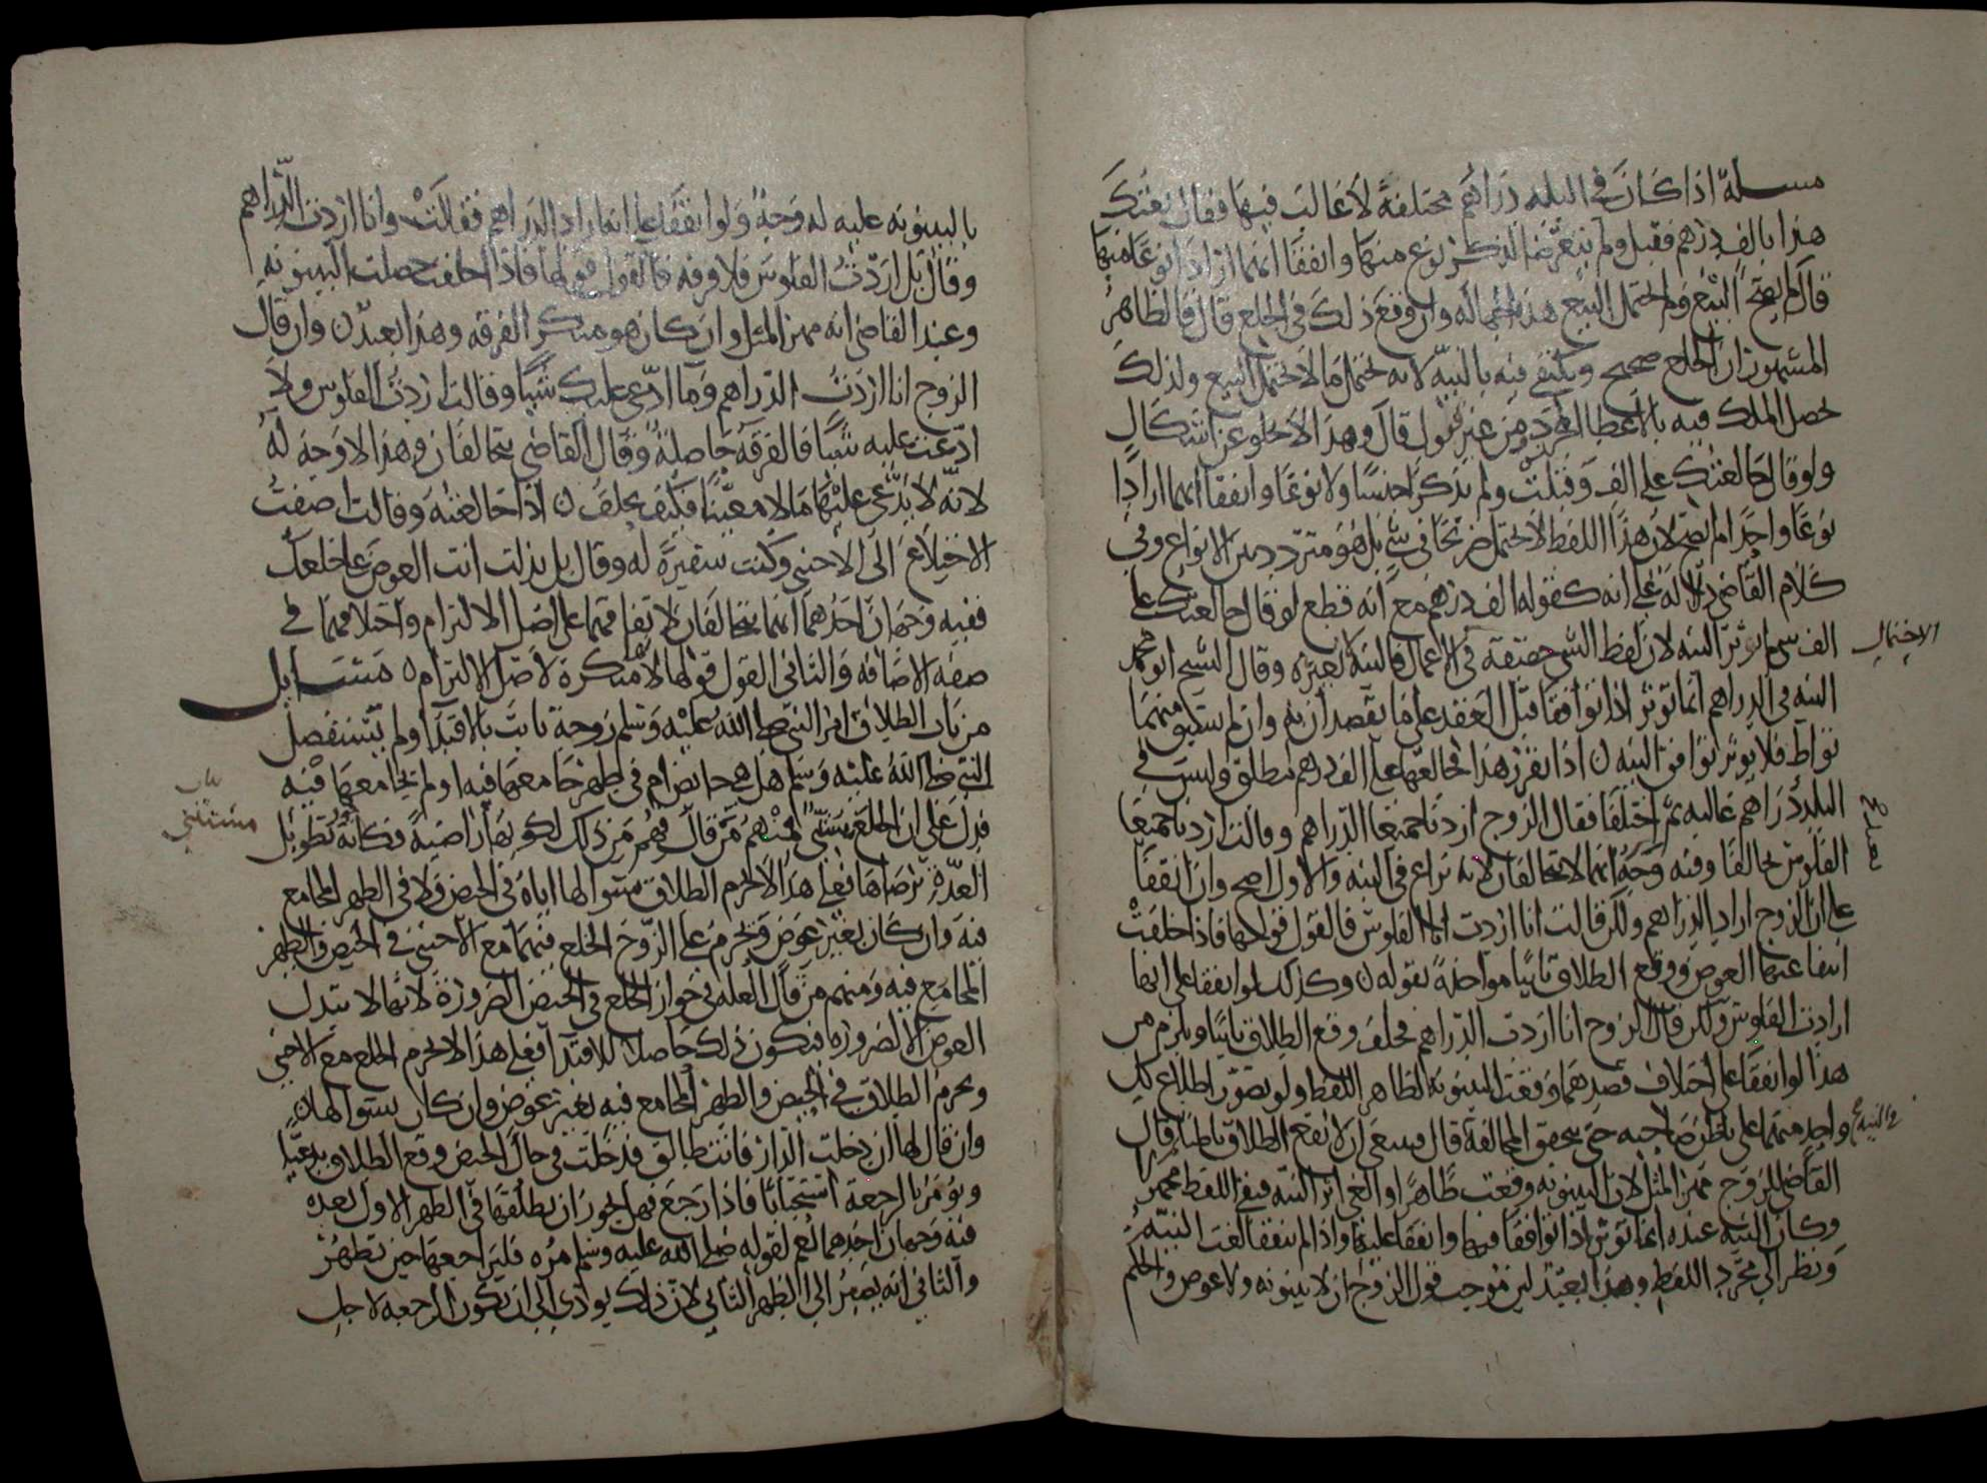 مسلة اذا كان في البلد دراهم مختلفة لا غالب فيها فقال بعتك
هذا بالف درهم فقبل ولم يتعرضا لذكر نوع منها واتفقا انهما ارادا نوعا منها
قال لم يصح البيع ولم يحتمل البيع هذه الجهالة وان وقع ذلك في الخلع قال فالظاهر
المشهور ان الخلع صحيح ويكتفى فيه بالنية لانه يحتمل ما لا يحتمل البيع ولذلك
يحصل الملك فيه بالاعطا المجرد من غير قبول قال وهذا لا يخلو عن اشكال
ولو قال خالعتك على الف وقبلت ولم يذكرا جنسا ولا نوعا واتفقا انهما ارادا
نوعا واحدا لم يصح لان هذا اللفظ لا يحتمل صريحا في شي بل هو متردد بين الانواع وفي
كلام القاضي دلالة على انه كقوله الف درهم مع انه قطع لو قال خالعتك على
الف شي لم يوثر النية لان لفظ الشي حقيقة في الاعمال فالنية لا تغيره وقال الشيخ ابو محمد
الاحتمال
النية في الدراهم انما توثر اذا توافقا قبل العقد على ما يقصدان به وان لم يسبق منهما
تواطؤ فلا يوثر توافق النية ن اذا تقرر هذا فخالعها على الف درهم مطلق وليس في
البلد دراهم غالبة ثم اختلفا فقال الزوج اردنا جميعا الدراهم وقالت اردنا جميعا
الفلوس تحالفا وفيه وجه انهما لا يتحالفان لانه نزاع في النية والاول اصح وان اتفقا
على ان الزوج اراد الدراهم ولكن قالت انا اردت انا الفلوس فالقول قولها فاذا حلفت
انتفا عنها العوض ووقع الطلاق باينا مواخذة بقوله ن وكذلك لو اتفقا على انها
ارادت الفلوس ولكن قال الزوج انا اردت الدراهم فحلف وقع الطلاق باينا ويلزم من
هذا لو اتفقا على اختلاف قصدهما وقعت البينونة لظاهر اللفظ ولو تصور اطلاع كل
واحد منهما على باطن صاحبه حتى يتحقق المخالفة قال فينبغي ان لا يقع الطلاق باطنا وقال
القاضي للزوج مهر المثل لان البينونة وقعت ظاهرا والغي اثر النية فبقي اللفظ مجهولا
وكان النية عنده انما توثر اذا توافقا فيها واتفقا عليها واذا لم يتفقا لغت النية
ونظر الى مجرد اللفظ وهذا بعيد لان موجب قول الزوج ان لا بينونة ولا عوض والحكم
بالبينونة عليه له وجه ولو اتفقا على انه اراد الدراهم فقالت وانا اردت الدراهم
وقال بل اردت الفلوس فلا فرقة فالقول قولها فاذا حلفت حصلت البينونة
وعند القاضي انه مهر المثل وان كان هو منكر الفرقة وهذا بعيد ن وان قال
الزوج انا اردت الدراهم وما ادعي عليك شيا وقالت اردت الفلوس ولا
ادعت عليه شيا فالفرقة حاصلة وقال القاضي يتحالفان وهذا لا وجه له
لانه لا يدعي عليها مالا معينا فكيف يحلف ن اذا خالعته وقالت اضفت
الاختلاع الى الاجنبي وكنت سفيرة له وقال بل بذلت انت العوض على خلعك
ففيه وجهان احدهما انهما يتحالفان لاتفاقهما على اصل الالتزام واختلافهما في
صفة الاضافة والثاني القول قولها لانها منكرة لاصل الالتزام ن مسايل
من باب الطلاق امر النبي صلى الله عليه وسلم زوجة ثابت بالافتدا ولم يستفصل
النبي صلى الله عليه وسلم هل هي حايض ام في طهر جامعها فيه او لم يجامعها فيه
فدل على ان الخلع مستثنى فمنهم من قال فهم من ذلك لكونها راضية فكانه تطويل
باب
مستثنى
العدة برضاها فعلى هذا لا يحرم الطلاق بسوالها اياه في الحيض ولا في الطهر المجامع
فيه وان كان بغير عوض ويحرم على الزوج الخلع فيهما مع الاجنبي في الحيض والطهر
المجامع فيه ومنهم من قال العلة في جواز الخلع في الحيض الضرورة لانها لا تبذل
العوض الا لضرورة فيكون ذلك حاصلا للافتدا فعلى هذا لا يحرم الخلع مع الاجنبي
ويحرم الطلاق في الحيض والطهر المجامع فيه بغير عوض وان كان بسوالها ن
وان قال لها ان دخلت الدار فانت طالق فدخلت في حال الحيض وقع الطلاق بدعيا
ويومر بالرجعة استحبابا فاذا رجع فهل يجوز ان يطلقها في الطهر الاول بعده
فيه وجهان احدهما نعم لقوله صلى الله عليه وسلم مره فليراجعها حتى تطهر
والثاني انه يصبر الى الطهر الثاني لان ذلك يودي الى ان تكون الرجعة لاجل